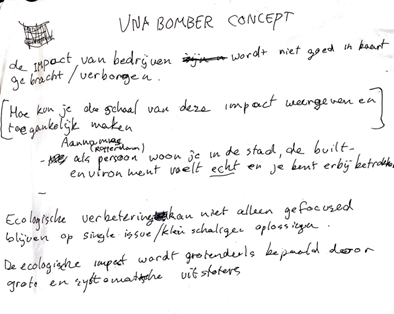 UNA BOMBER CONCEPT
de IMPact van bedrijven wordt niet goed in kaart
gebracht / verborgen.
Hoe kun je de schaal van deze impact weergeven en
toegankelijk maken
Aanname
(Rotterdam)
- als persoon woon je in de stad, de built-
environment voelt echt en je bent erbij betrokken
-
Ecologische verbetering kan niet alleen gefocused
blijven op single issue / klein schaliger oplossingen.
De ecologische impact wordt grotendeels bepaald door
grote en systematische uitstoters